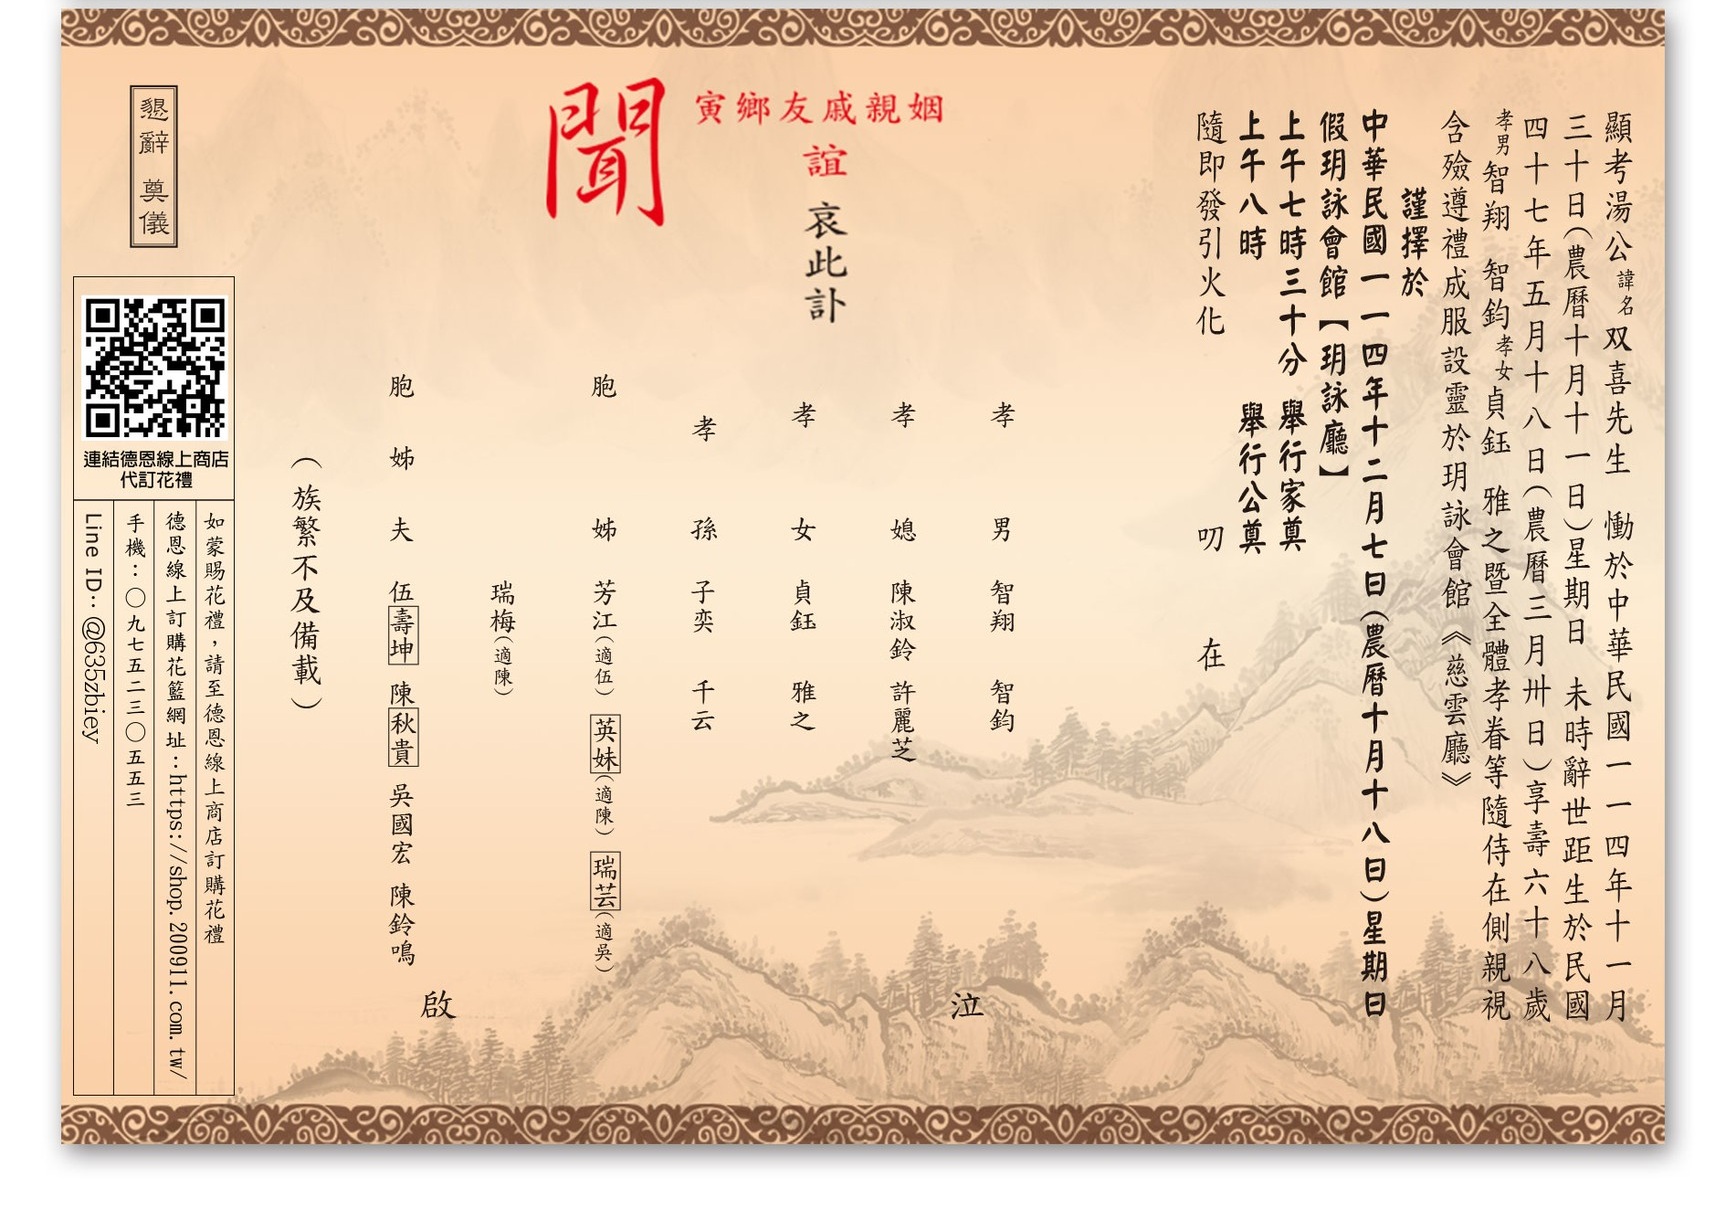 顯考湯公諱名双喜先生 慟於中華民國一一四年十一月
三十日(農曆十月十一日)星期日 未時辭世距生於民國
四十七年五月十八日(農曆三月卅日)享壽六十八歲
孝男智翔 智鈞孝女貞鈺 雅之暨全體孝眷等隨侍在側親視
含殮遵禮成服設靈於玥詠會館《慈雲廳》
謹擇於
中華民國一一四年十二月七日(農曆十月十八日)星期日
假玥詠會館【玥詠廳】
上午七時三十分 舉行家奠
上午八時 舉行公奠
隨即發引火化
叨 在
姻親戚友鄉寅
誼
哀此訃
聞
孝男 智翔 智鈞
孝媳 陳淑鈴 許麗芝
孝女 貞鈺 雅之
孝孫 子奕 千云
泣
胞姊 芳江(適伍) 英妹(適陳) 瑞芸(適吳)
瑞梅(適陳)
胞姊夫 伍壽坤 陳秋貴 吳國宏 陳鈴鳴
啟
(族繁不及備載)
懇辭 奠儀
連結德恩線上商店
代訂花禮
如蒙賜花禮，請至德恩線上商店訂購花禮
德恩線上訂購花籃網址：https://shop.200911.com.tw/
手機：〇九七五二三〇五五三
Line ID：@635zbiey